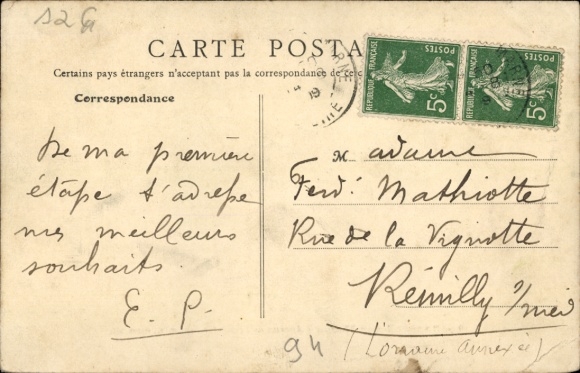 CARTE POSTA
Certains pays étrangers n'acceptant pas la correspondance de ce c
Correspondance
RÉPUBLIQUE FRANÇAISE
POSTES
5c
RÉPUBLIQUE FRANÇAISE
POSTES
5c
09
De ma première
étape t'adresse
mes meilleurs
souhaits.
E. P.
Madame
Ferd. Mathiotte
Rue de la Vignotte
Rémilly
(Lorraine annexée)
94